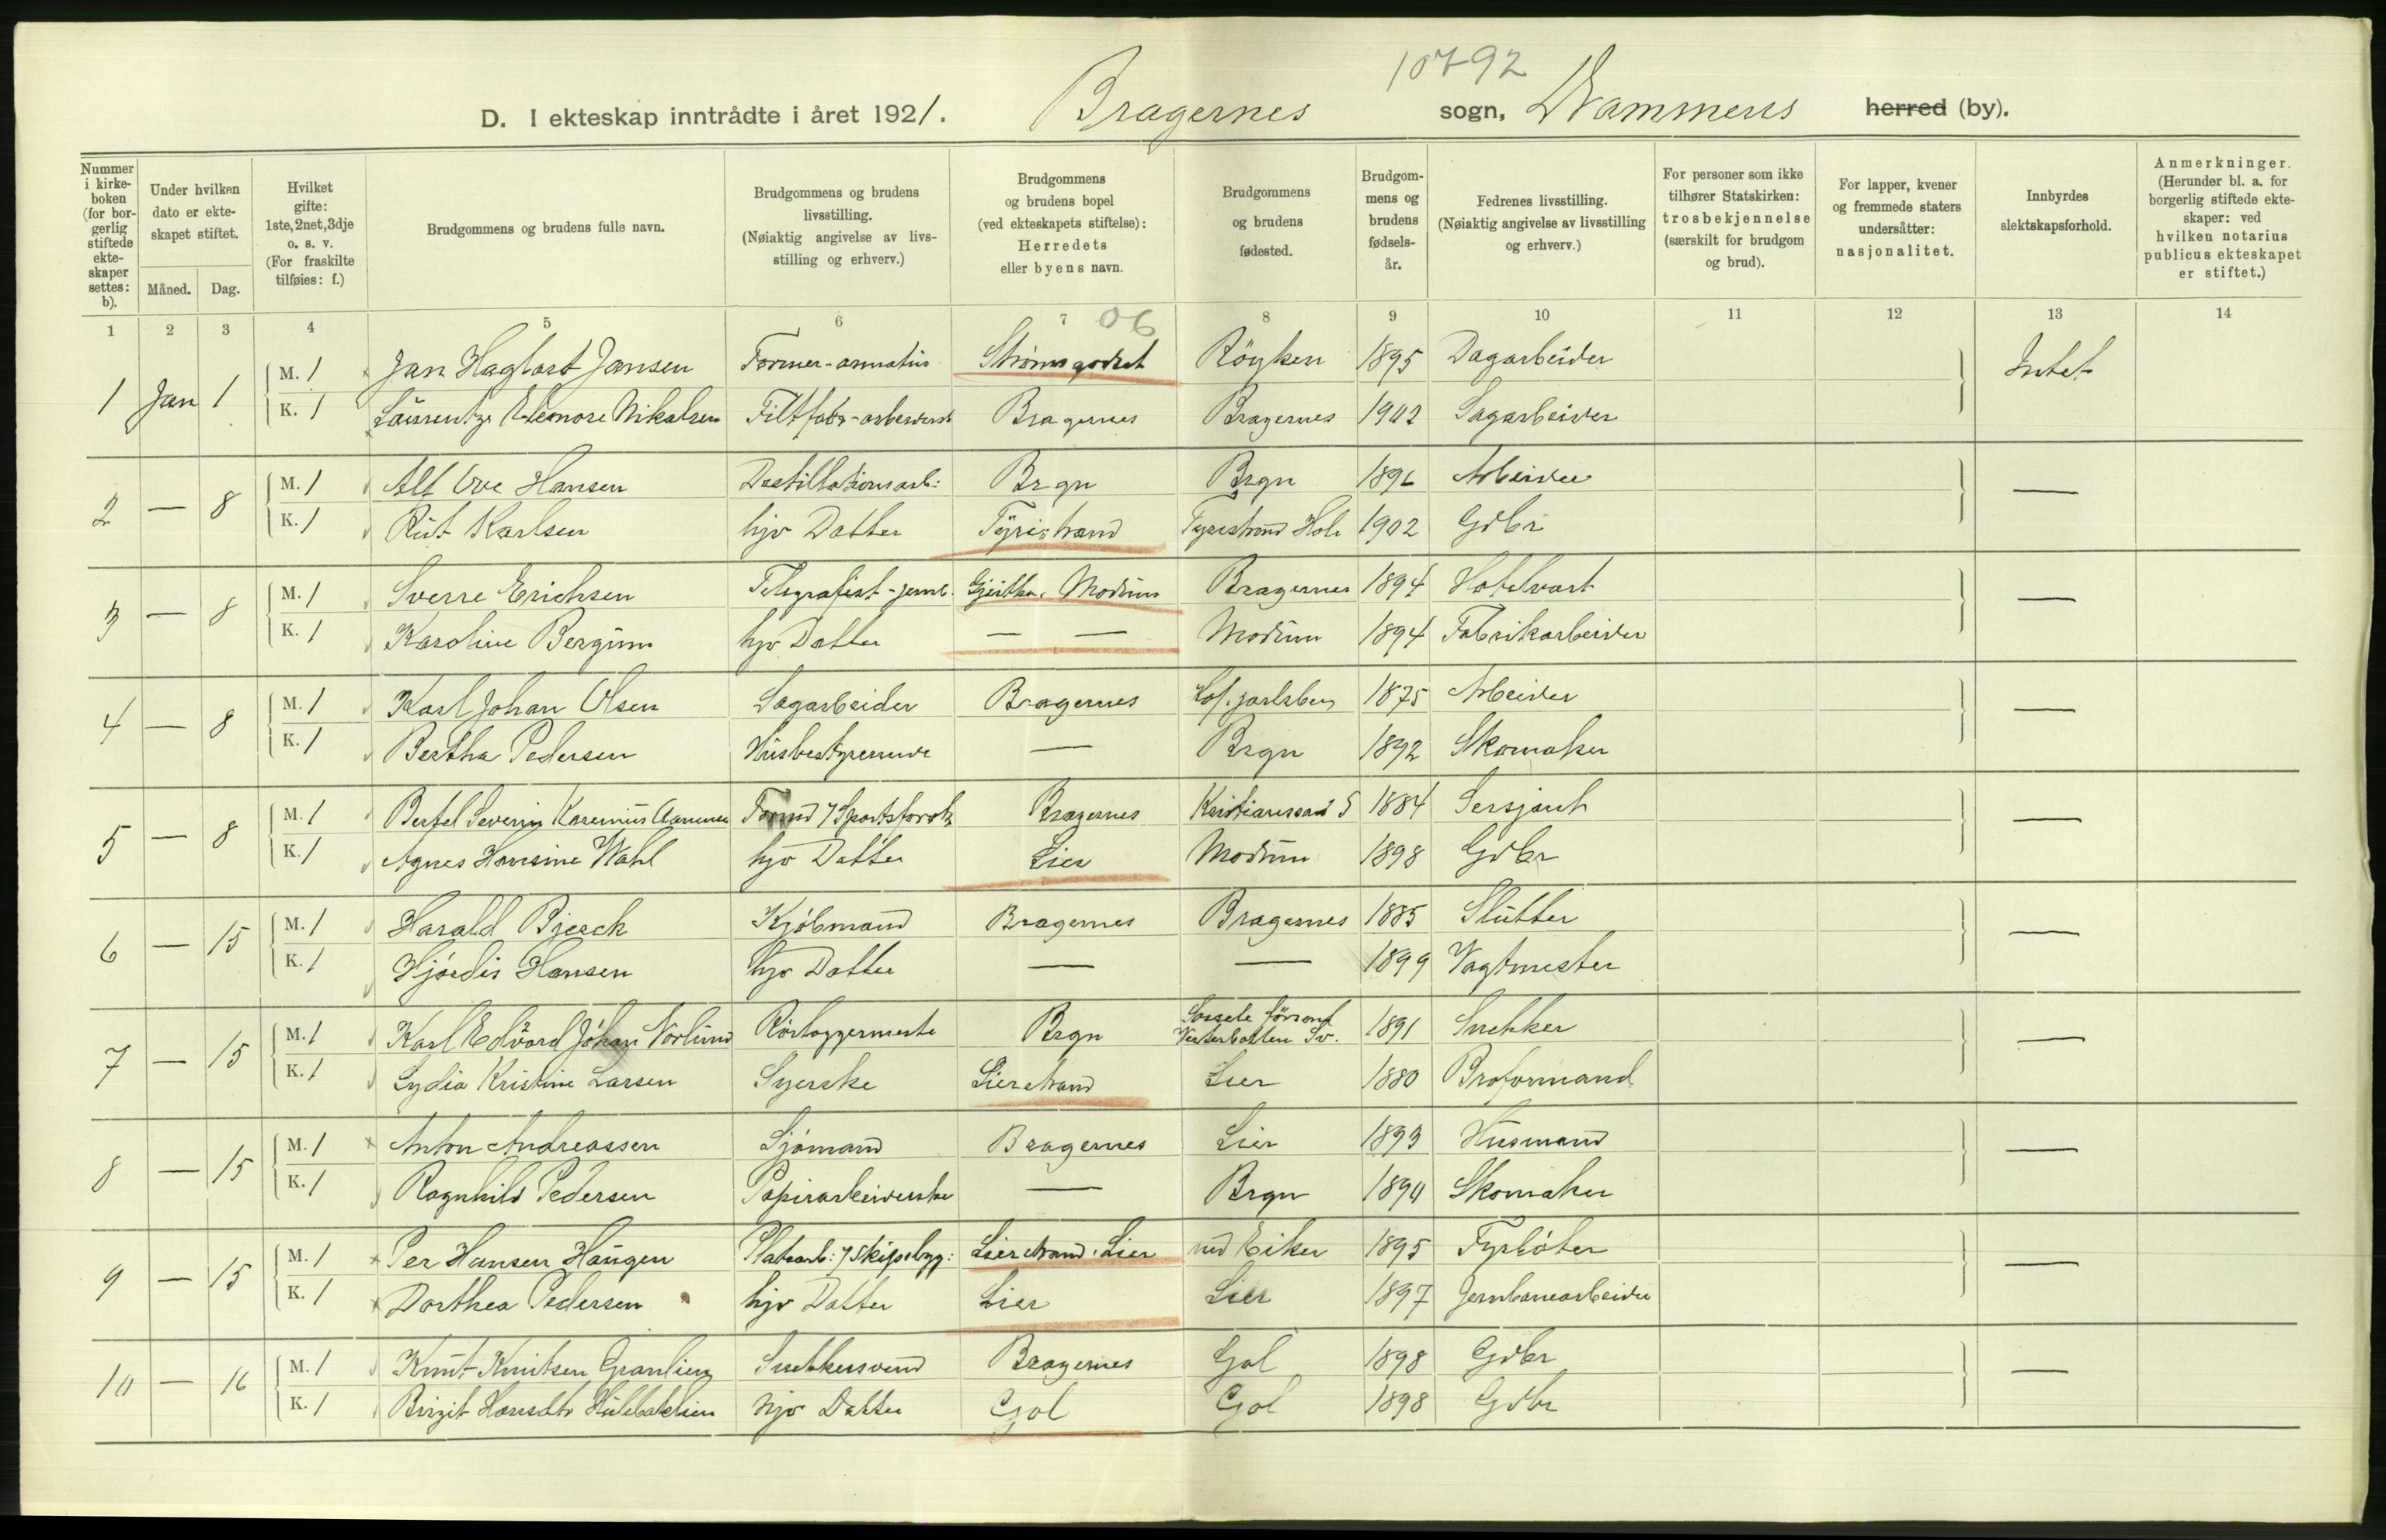 10792
D. I ekteskap inntrådte i året 1921. Bragernes sogn, Drammens herred (by).
Nummer i kirkeboken (for borgerlig stiftede ekteskaper settes: b).
Under hvilken dato er ekteskapet stiftet.
Måned. Dag.
Hvilket gifte: 1ste, 2net, 3dje o. s. v. (For fraskilte tilføies: f.)
Brudgommens og brudens fulle navn.
Brudgommens og brudens livsstilling. (Nøiaktig angivelse av livsstilling og erhverv.)
Brudgommens og brudens bopel (ved ekteskapets stiftelse): Herredets eller byens navn.
Brudgommens og brudens fødested.
Brudgommens og brudens fødselsår.
Fedrenes livsstilling. (Nøiaktig angivelse av livsstilling og erhverv.)
For personer som ikke tilhører Statskirken: trosbekjennelse (særskilt for brudgom og brud).
For lapper, kvener og fremmede staters undersåtter: nasjonalitet.
Innbyrdes slektskapsforhold.
Anmerkninger. (Herunder bl. a. for borgerlig stiftede ekteskaper: ved hvilken notarius publicus ekteskapet er stiftet.)
1 2 3 4 5 6 7 06 8 9 10 11 12 13 14
1 Jan 1 M. 1 Jan Haglart Jansen Former-armatur Strømsgodset Röyken 1895 Dagarbeider Intet
K. 1 Laurentze Eleonore Nikolsen Filtfabr-arbeiderske Bragernes Bragernes 1902 Sagarbeider
2 — 8 M. 1 Alf Ove Hansen Destillationsarb: Brgn Brgn 1896 Arbeider —
K. 1 Rut Karlsen hjv Datter Tyristrand Tyristrand Hole 1902 Gdbr
3 — 8 M. 1 Sverre Erichsen Telegrafist-jernb. Gjeithus, Modum Bragernes 1894 Hotelvært —
K. 1 Karoline Bergum hjv Datter — — Modum 1894 Fabrikarbeider
4 — 8 M. 1 Karl Johan Olsen Sagarbeider Bragernes Hof. jarlsberg 1875 Arbeider —
K. 1 Bertha Pedersen Husbestyrerinde — Brgn 1892 Skomaker
5 — 8 M. 1 Bertel Severin Bragernes Kristianssand S 1884 Sersjant —
K. 1 Agnes Hansine Wahl hjv Datter Lier Modum 1898 Gdbr
6 — 15 M. 1 Harald Bjerck Kjøbmand Bragernes Bragernes 1885 Slutter —
K. 1 Hjördis Hansen hjv Datter — — 1899 Vagtmester
7 — 15 M. 1 Karl Edvard Johan Norlund Rörlæggermester Brgn Vesterbotten Sv. 1891 Snekker —
K. 1 Lydia Kristine Larsen Syerske Lierstrand Lier 1880 Proformand
8 — 15 M. 1 Anton Andreassen Sjömand Bragernes Lier 1893 Husmand —
K. 1 Ragnhild Pedersen Papirarbeiderske — Brgn 1894 Skomaker
9 — 15 M. 1 Per Hansen Haugen Platearb: / Skipsbygg: Lierstrand, Lier ned Eiker 1895 Fyrböter —
K. 1 Dorthea Pedersen hjv Datter Lier Lier 1897 Jernbanearbeider
10 — 16 M. 1 Knut Knutsen Granlien Snekkersvend Bragernes Gol 1898 Gdbr —
K. 1 Birgit hjv Datter Gol Gol 1898 Gdbr